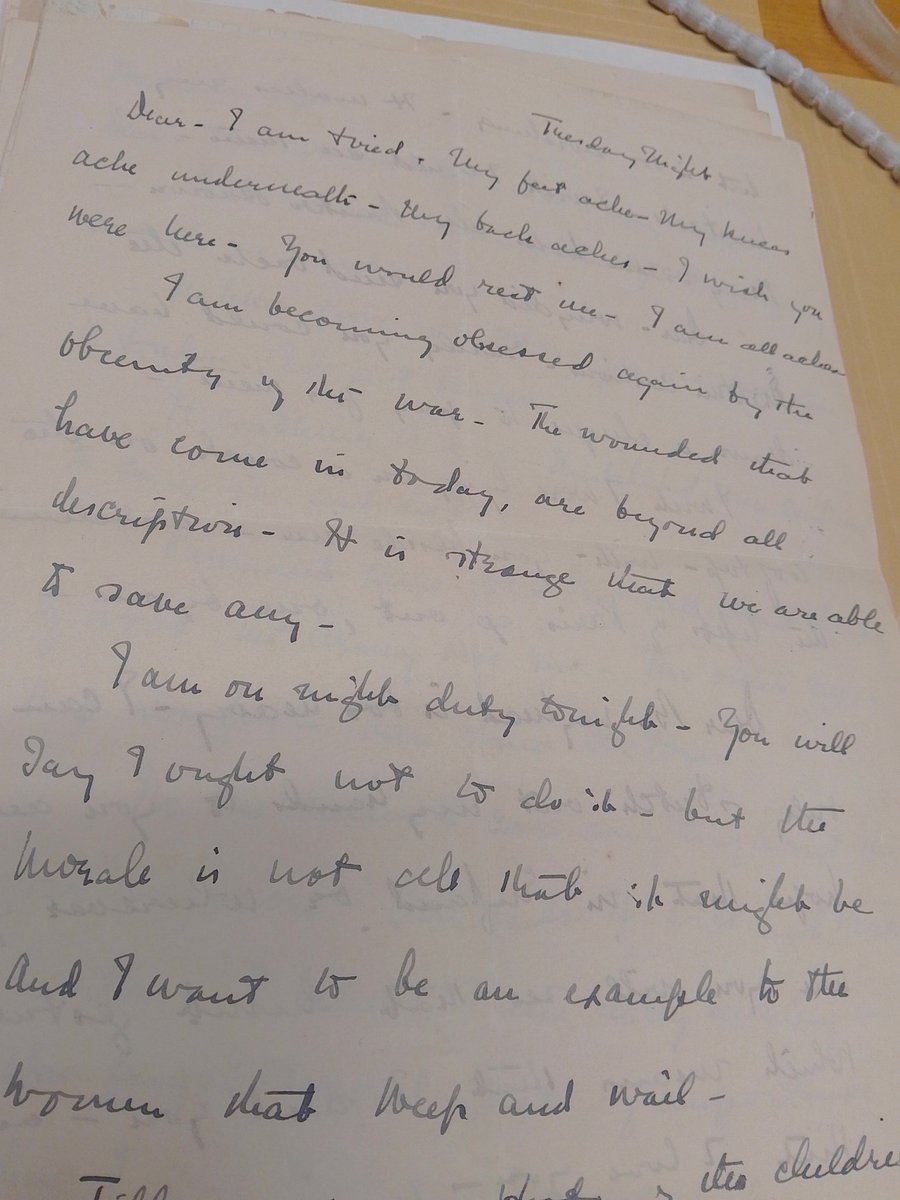 Tuesday Night
Dear - I am tired. My feet ache - My knees
ache underneath - My back aches - I wish you
were here - You would rest me - I am all aches
I am becoming obsessed again by the
obscenity of this war - The wounded that
have come in today, are beyond all
description - It is strange that we are able
to save any -
I am on night duty tonight - You will
Say I ought not to do it - but the
Morale is not all that it might be
And I want to be an example to the
women that weep and wail -
the children